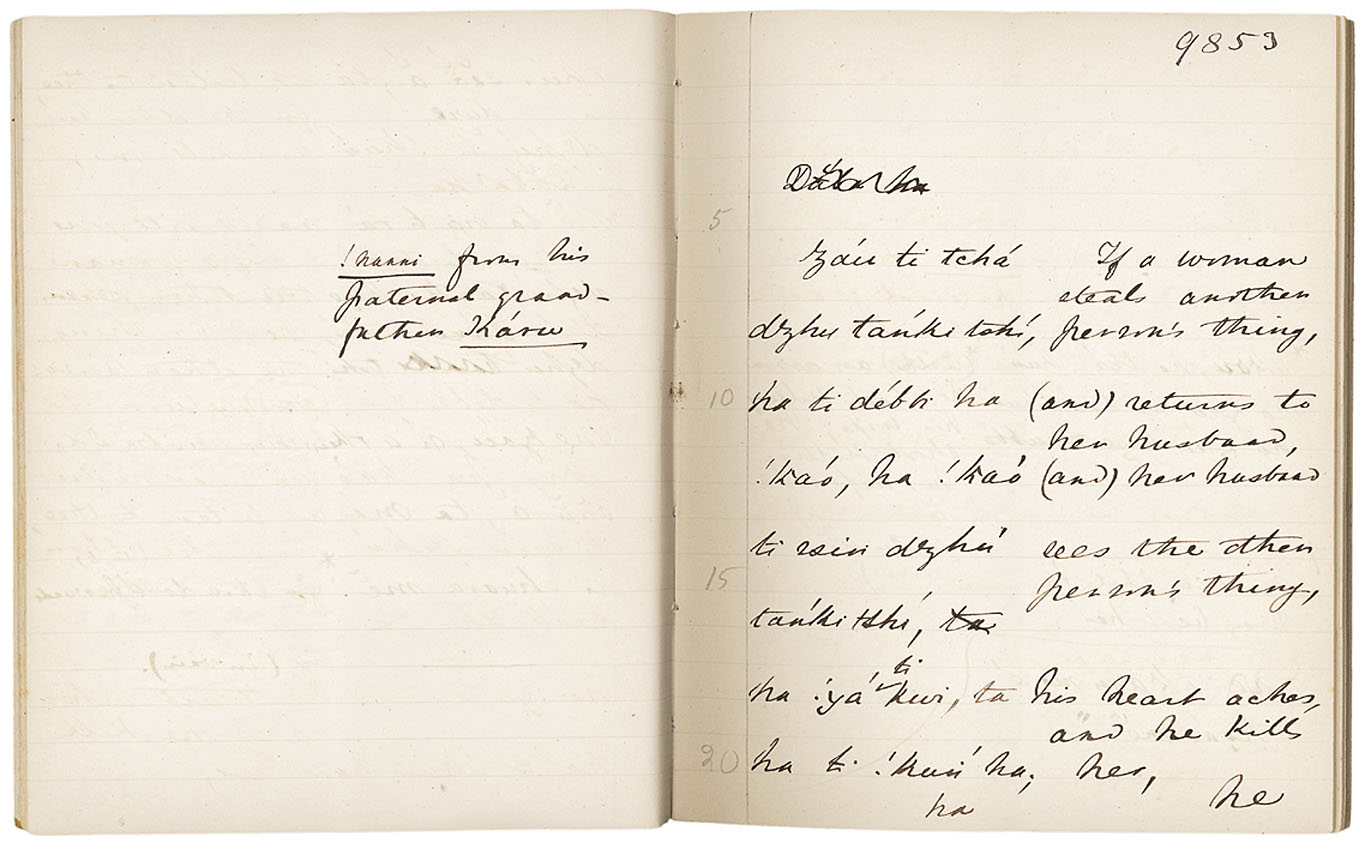 !nanni from his
paternal grand-
father Káru
9853
5
Záu ti tchá If a woman
steals another
dzhu tańki tchí, person's thing,
10 ha ti débbi ha (and) returns to
her husband,
!kaó, ha !kaó (and) her husband
ti sein dzhú sees the other
15 person's thing,
tańki tshí, ta
ti
ha !yá kwi, ta his heart aches,
and he kills
20 ha ti !kuń ha; her,
ha he